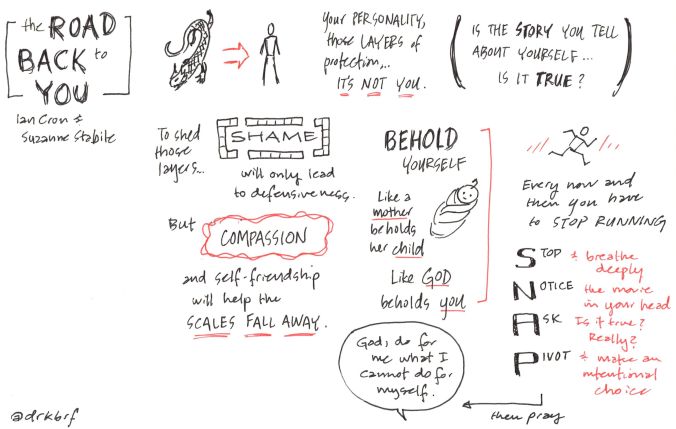 the ROAD
BACK to
YOU
Ian Cron &
Suzanne Stabile
Your PERSONALITY,
those LAYERS of
protection...
IT'S NOT YOU.
IS THE STORY YOU TELL
ABOUT YOURSELF...
IS IT TRUE?
To shed
those
layers...
SHAME
will only lead
to defensiveness.
But
COMPASSION
and self-friendship
will help the
SCALES FALL AWAY.
BEHOLD
YOURSELF
Like a
mother
beholds
her child
Like GOD
beholds you
Every now and
then you have
to STOP RUNNING
STOP & breathe
deeply
NOTICE the movie
in your head
ASK Is it true?
Really?
PIVOT & make an
intentional
choice
then pray
God, do for
me what I
cannot do for
myself.
@drkbrf